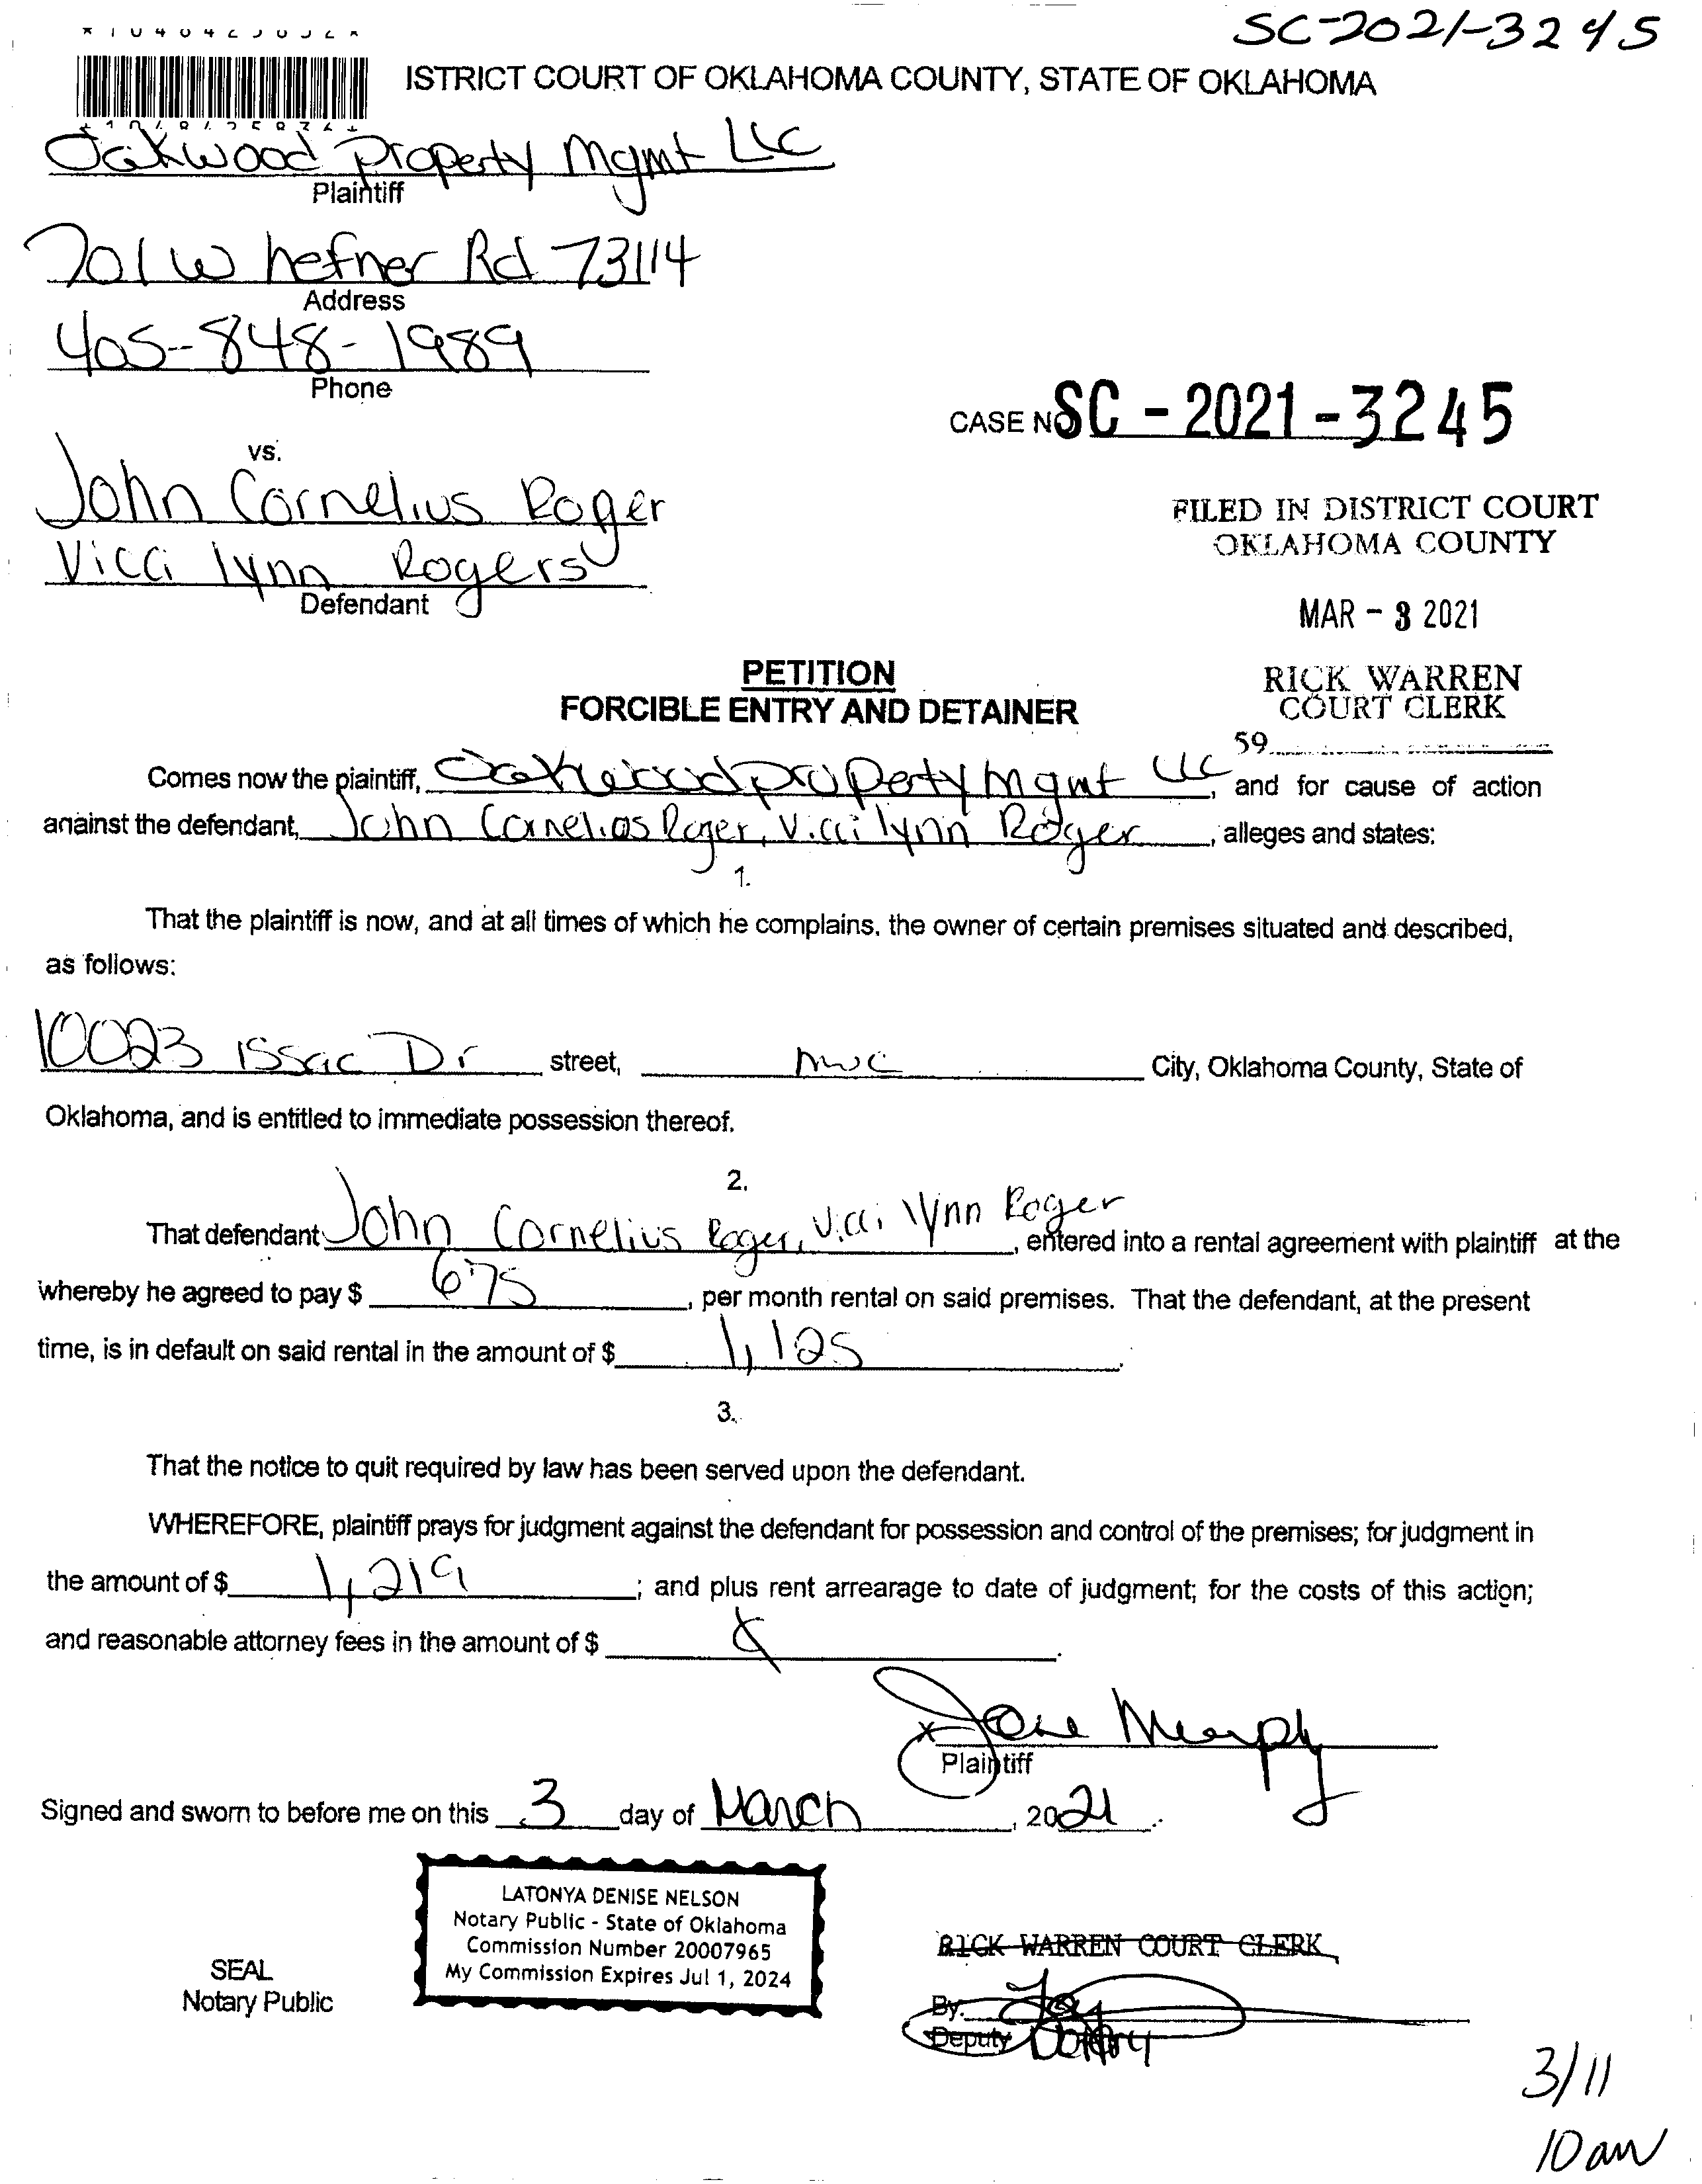 SC-2021-3245
ISTRICT COURT OF OKLAHOMA COUNTY, STATE OF OKLAHOMA
Oakwood Property Mgmt LLC
Plaintiff
701 W hefner Rd 73114
Address
405-848-1989
Phone
CASE NO SC - 2021 - 3245
vs.
John Cornelius Roger
Vicci lynn Rogers
Defendant
FILED IN DISTRICT COURT
OKLAHOMA COUNTY
MAR - 3 2021
RICK WARREN
COURT CLERK
59
PETITION
FORCIBLE ENTRY AND DETAINER
Comes now the plaintiff, Oakwood property Mgmt LLC, and for cause of action
against the defendant, John Cornelios Roger, Vicci lynn Roger, alleges and states:
1.
That the plaintiff is now, and at all times of which he complains, the owner of certain premises situated and described,
as follows:
10023 issac Dr street, mwc City, Oklahoma County, State of
Oklahoma, and is entitled to immediate possession thereof.
2.
That defendant John Cornelius Roger, Vicci lynn Roger, entered into a rental agreement with plaintiff at the
whereby he agreed to pay $ 675, per month rental on said premises. That the defendant, at the present
time, is in default on said rental in the amount of $ 1,125.
3.
That the notice to quit required by law has been served upon the defendant.
WHEREFORE, plaintiff prays for judgment against the defendant for possession and control of the premises; for judgment in
the amount of $ 1,219; and plus rent arrearage to date of judgment; for the costs of this action;
and reasonable attorney fees in the amount of $
x Jane Murphy
Plaintiff
Signed and sworn to before me on this 3 day of March, 2021.
LATONYA DENISE NELSON
Notary Public - State of Oklahoma
Commission Number 20007965
My Commission Expires Jul 1, 2024
SEAL
Notary Public
RICK WARREN COURT CLERK
By:
Deputy Notary
3/11
10 am